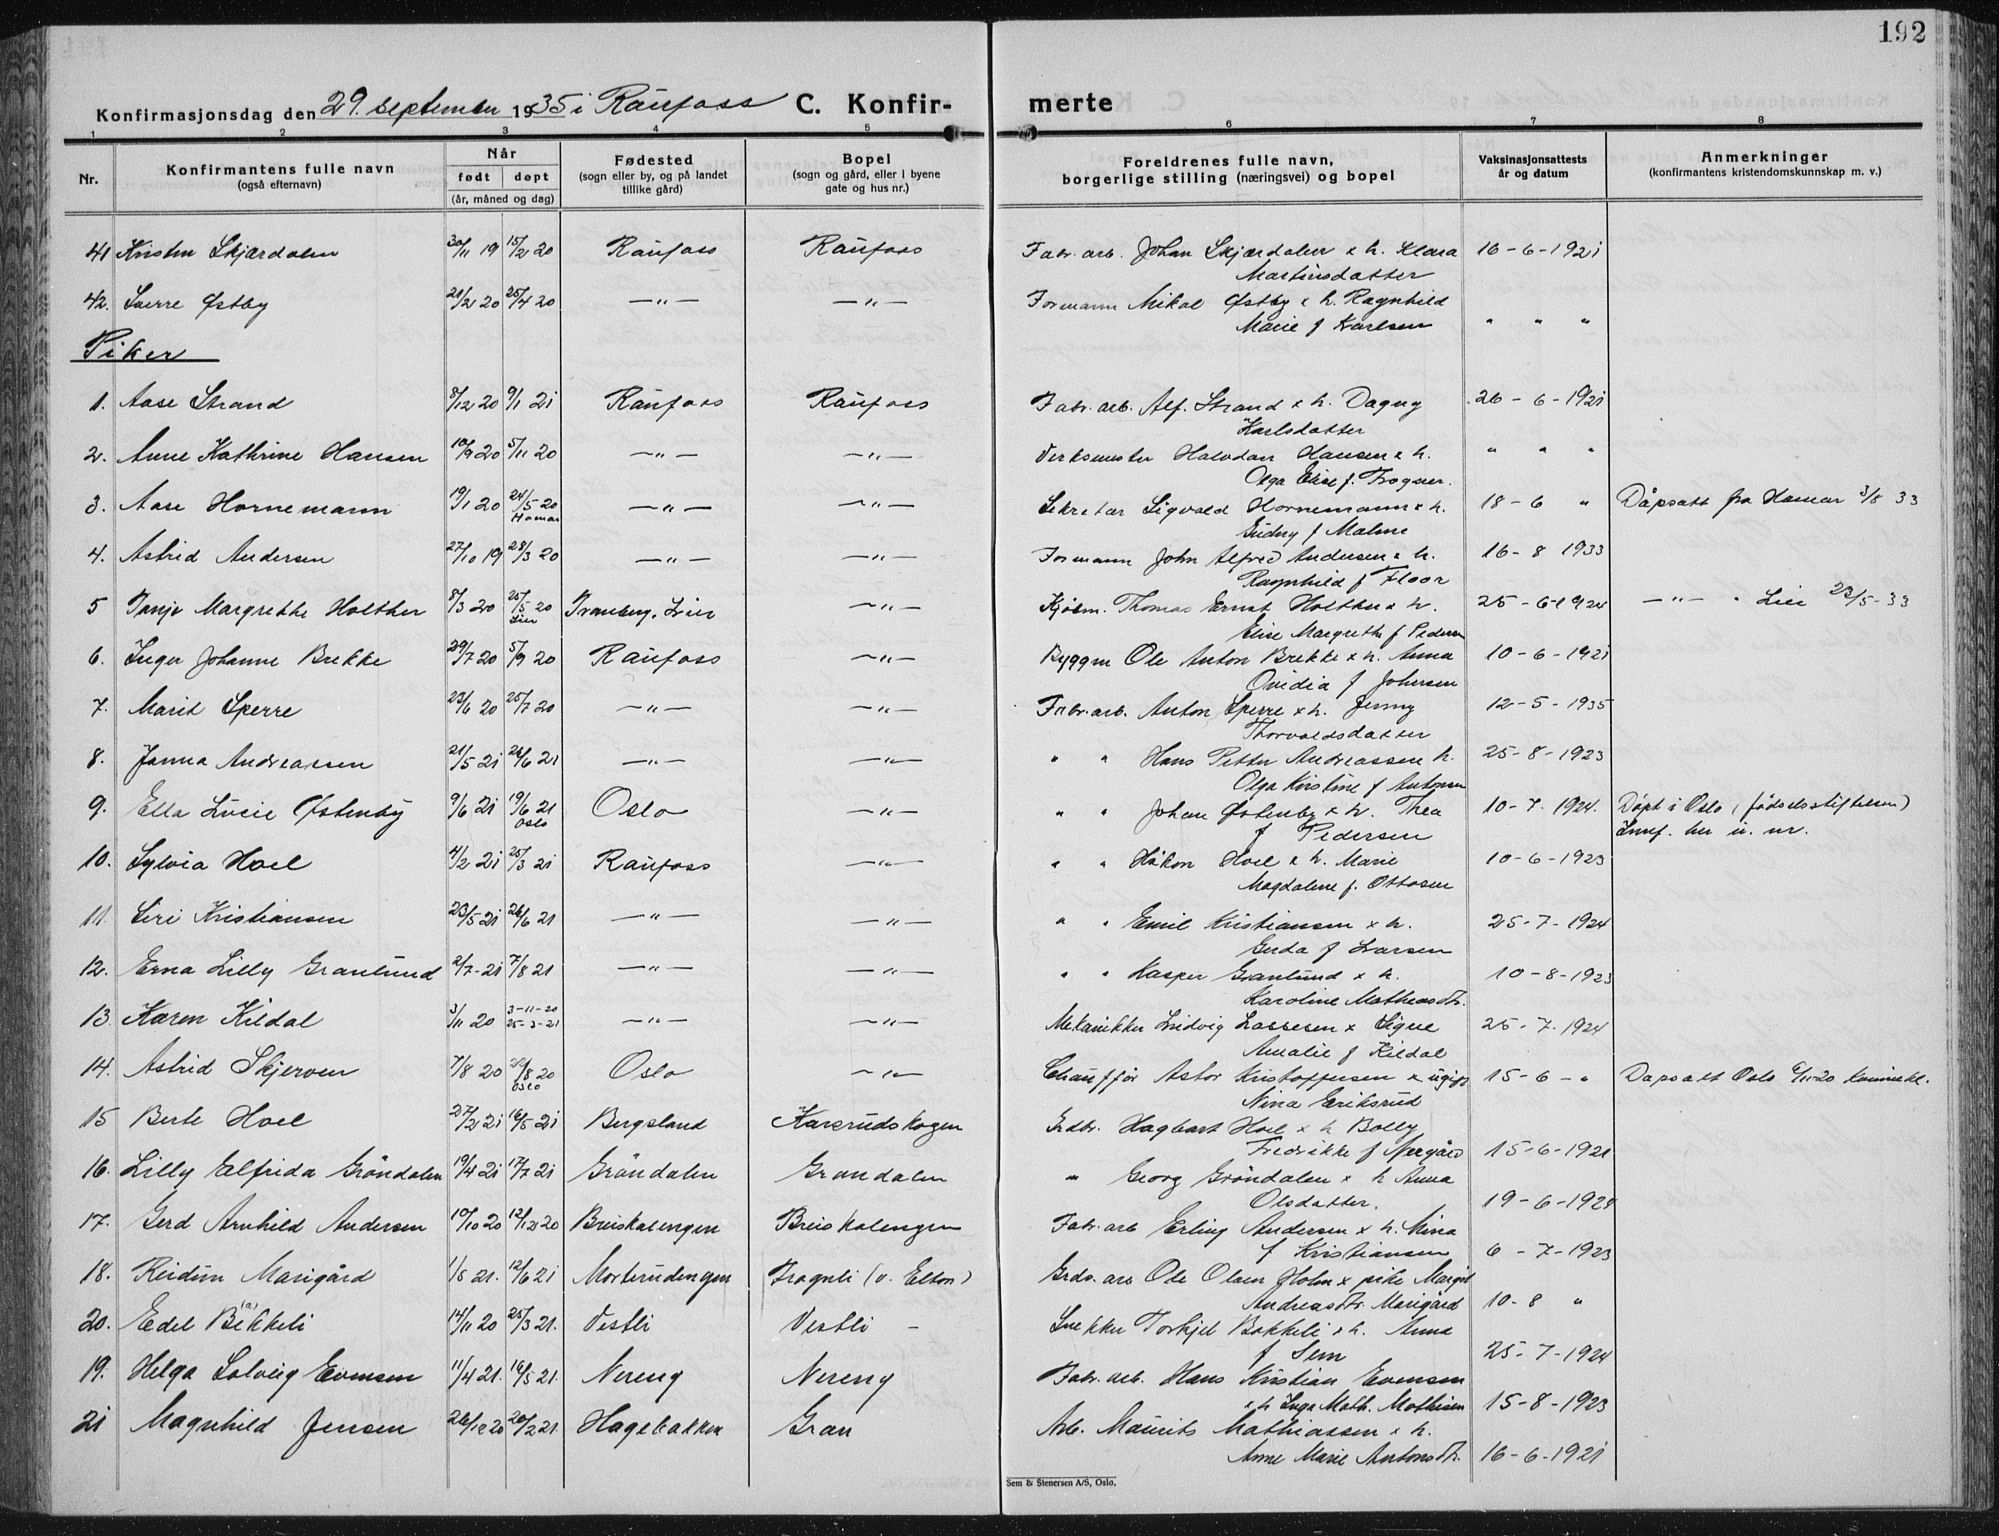 192
Konfirmasjonsdag den 29. september 1935 i Raufoss C. Konfir- merte
1 2 3 4 5 6 7 8
Nr. Konfirmantens fulle navn (også efternavn) Når født døpt (år, måned og dag) Fødested (sogn eller by, og på landet tillike gård) Bopel (sogn og gård, eller i byene gate og hus nr.) Foreldrenes fulle navn, borgerlige stilling (næringsvei) og bopel Vaksinasjonsattests år og datum Anmerkninger (konfirmantens kristendomskunnskap m. v.)
41 Kristen Skjærdalen 30/11 19 15/2 20 Raufoss Raufoss Fabr. arb. Johan Skjærdalen x h. Klara 16-6-1921
Martinsdatter
42. Sverre Østby 21/2 20 25/4 20 —"— —"— Formann Mikal Østby x h. Ragnhild
Marie f Karlsen " " "
Piker
1. Aase Strand 8/12 20 9/1 21 Raufoss Raufoss Fabr. arb. Alf. Strand x h. Dagny 26-6-1921
Karlsdatter
2. Anne Kathrine Hansen 10/9 20 5/11 20 —"— —"— Verksmester Halvdan Hansen x h. " " "
Olga Elise f. Trogner.
3. Aase Hornemann 19/1 20 24/5 20 Hamar —"— —"— Sekretær Sigvald Hornemann x h. 18-6 " Dåpsatt fra Hamar 3/8 33
Gudny f Malme
4. Astrid Andersen 27/10 19 28/3 20 —"— —"— Formann John Alfred Andersen x h. 16-8 1933
Ragnhild f Floor
5 Tanje Margrethe Holther 8/3 20 25/5 20 Lier Tranberg, Lier —"— Kjøbm. Thomas Ernst Holther x h. 25-6-1924 —"— " Lier 23/5-33
Elise Margrethe f Pedersen
6. Inger Johanne Brekke 29/7 20 5/9 20 Raufoss —"— Byggm Ole Anton Brekke x h. Anna 10-6-1921
Ovidia f Johnsen
7. Marit Sperre 23/6 20 25/7 20 —"— —"— Fabr. arb. Anton Sperre x h. Jenny 12-5-1935
Thorvaldsdatter
8. Janna Andreassen 21/5 21 26/6 21 —"— —"— " " Hans Petter Andreassen h. 25-8-1923
Olga Kristine f Antonsen
9. Ella Lucie Østenby 9/6 21 19/6 21 Oslo Oslo —"— " " Johan Østenby x h. Thea 10-7-1924. Døpt i Oslo (fødselsstiftelsen)
f Pedersen Innf. her u. nr.
10. Sylvia Hoel 4/2 21 25/3 21 Raufoss —"— " " Håkon Hoel x h. Marie 10-6-1923
Magdalene f. Ottosen
11. Siri Kristiansen 23/5 21 26/6 21 —"— —"— " " Emil Kristiansen x h. 25-7-1924
Gerda f Larsen
12. Erna Lilly Granlund 2/7-21 7/8 21 —"— —"— " " Kasper Granlund x h. 10-8-1923
Karoline Matheasdtr.
13. Karen Kildal 3/11 20 3-11-20 25-3-21 —"— —"— Mekanikker Ludvig Lassesen x Signe 25-7-1924
Amalie f Kildal
14. Astrid Skjerven 7/8 20 /8 20 Oslo Oslo —"— Chauffør Astor Kristoffersen x ugift 15-6-" Dåpsatt Oslo
Nina Eriksrud
15 Berte Hoel 27/2 21 16/5 21 Bergsland Karsrudskogen Grdbr. Hagbart Hoel x h Bolly
Fredrikke f Nergård 15-6-1921
16. Lilly Elfrida Grøndalen 19/4 21 17/7 21 Grøndalen Grøndalen " Georg Grøndalen x h Anna
Olsdatter. 19-6-1924
17. Gerd Arnhild Andersen 10/10 20 12/12 20 Breiskalengen Breiskalengen Fabr. arb Erling Andersen x h. Mina
f Kristiansen 6-7-1923
18. Reidun Marigård 1/5 21. 12/6 21 Morterudengen Frognli (v. Elton) Grds. arb Ole Olsen Holm x pike Margit
Andreasdtr. Marigård 10-8 "
20. Edel Bekkeli (a) 14/11 20 25/3 21. Vestli Vestli - Snekker Torkjel Bakkeli x h. Anna
f Sem 25-7-1924
19. Helga Solveig Evensen 11/4 21. 16/5 21. Nereng Nereng Fabr. arb. Hans Kristian Evensen
x h Inga Math. Mathisen 15-8-1923
21 Magnhild Jensen 26/12 20 20/2 21. Hagebakken Gran Arb. Maurits Mathiassen x h.
Anne Marie Antonsdtr. 16-6-1921
Sem & Stenersen A/S, Oslo.